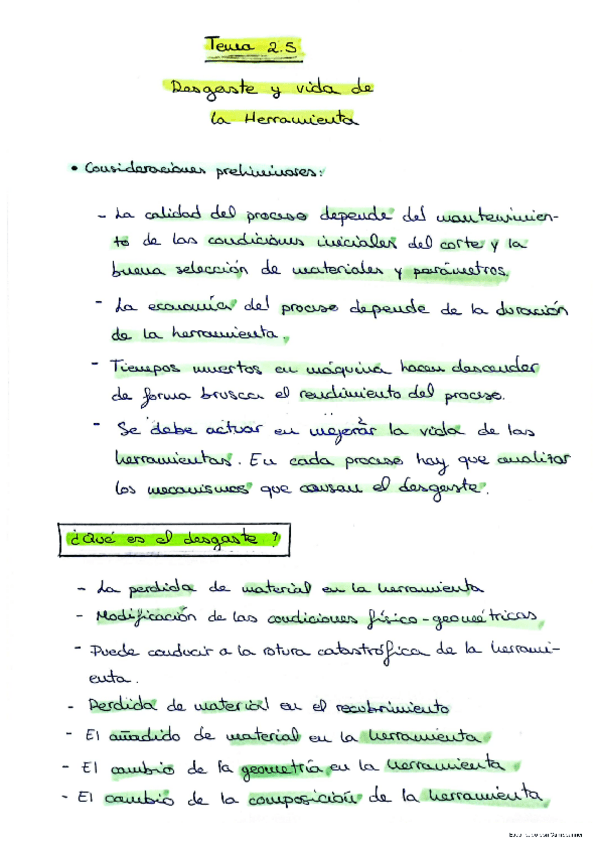 Tema 2.5
Desgaste y vida de
la Herramienta
• Consideraciones preliminares:
- La calidad del proceso depende del mantenimien-
to de las condiciones iniciales del corte y la
buena selección de materiales y parámetros.
- La economía del proceso depende de la duración
de la herramienta.
- Tiempos muertos en máquina hacen descender
de forma brusca el rendimiento del proceso.
- Se debe actuar en mejorar la vida de las
herramientas. En cada proceso hay que analizar
los mecanismos que causan el desgaste.
¿Qué es el desgaste?
- La perdida de material en la herramienta
- Modificación de las condiciones físico-geométricas
- Puede conducir a la rotura catastrófica de la herrami-
enta.
- Perdida de material en el recubrimiento
- El añadido de material en la herramienta
- El cambio de la geometría en la herramienta
- El cambio de la composición de la herramienta